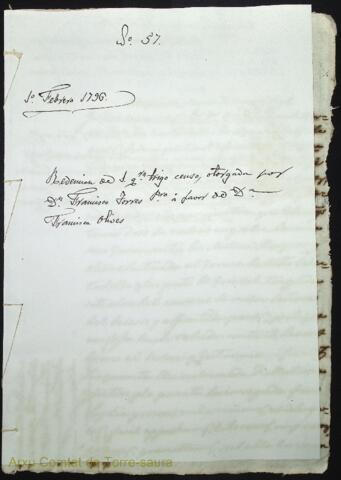 Nº 57.
1º Febrero 1796.
Redencion de 1. qª trigo censo, otorgada por
Dn Francisco Torres Pro á favor de Dn
Francisco Olives
Arxiu Comtat de Torre-saura